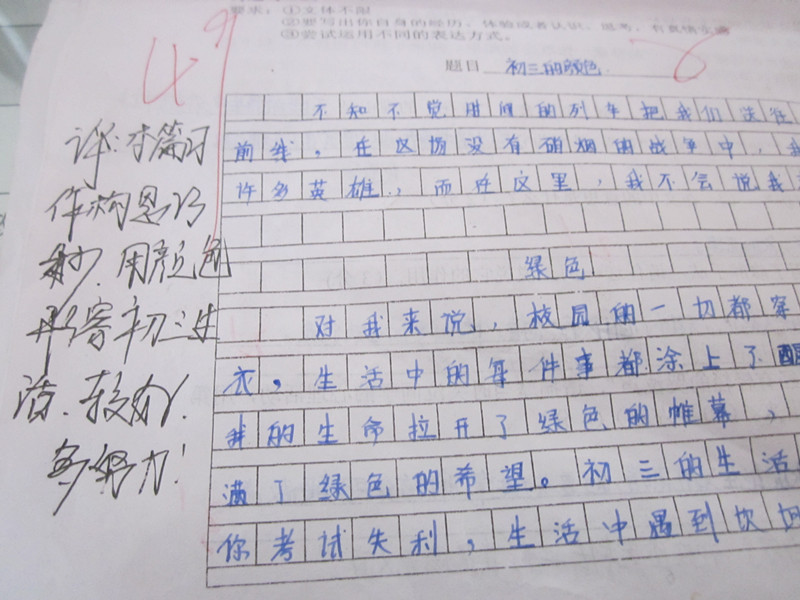 要求：①文体不限
②要写出你自身的经历、体验或者认识、思考，有真情实感
③尝试运用不同的表达方式。
49
题目 初三的颜色
不知不觉时间的列车把我们送往
前线，在这场没有硝烟的战争中，我
许多英雄，而在这里，我不会说我
绿色
对我来说，校园的一切都穿
衣，生活中的每件事都涂上了
我的生命拉开了绿色的帷幕，
满了绿色的希望。初三的生活
你考试失利，生活中遇到坎坷
评：本篇习
作构思巧
妙，用颜色
形容初三生
活，较好，
多努力！